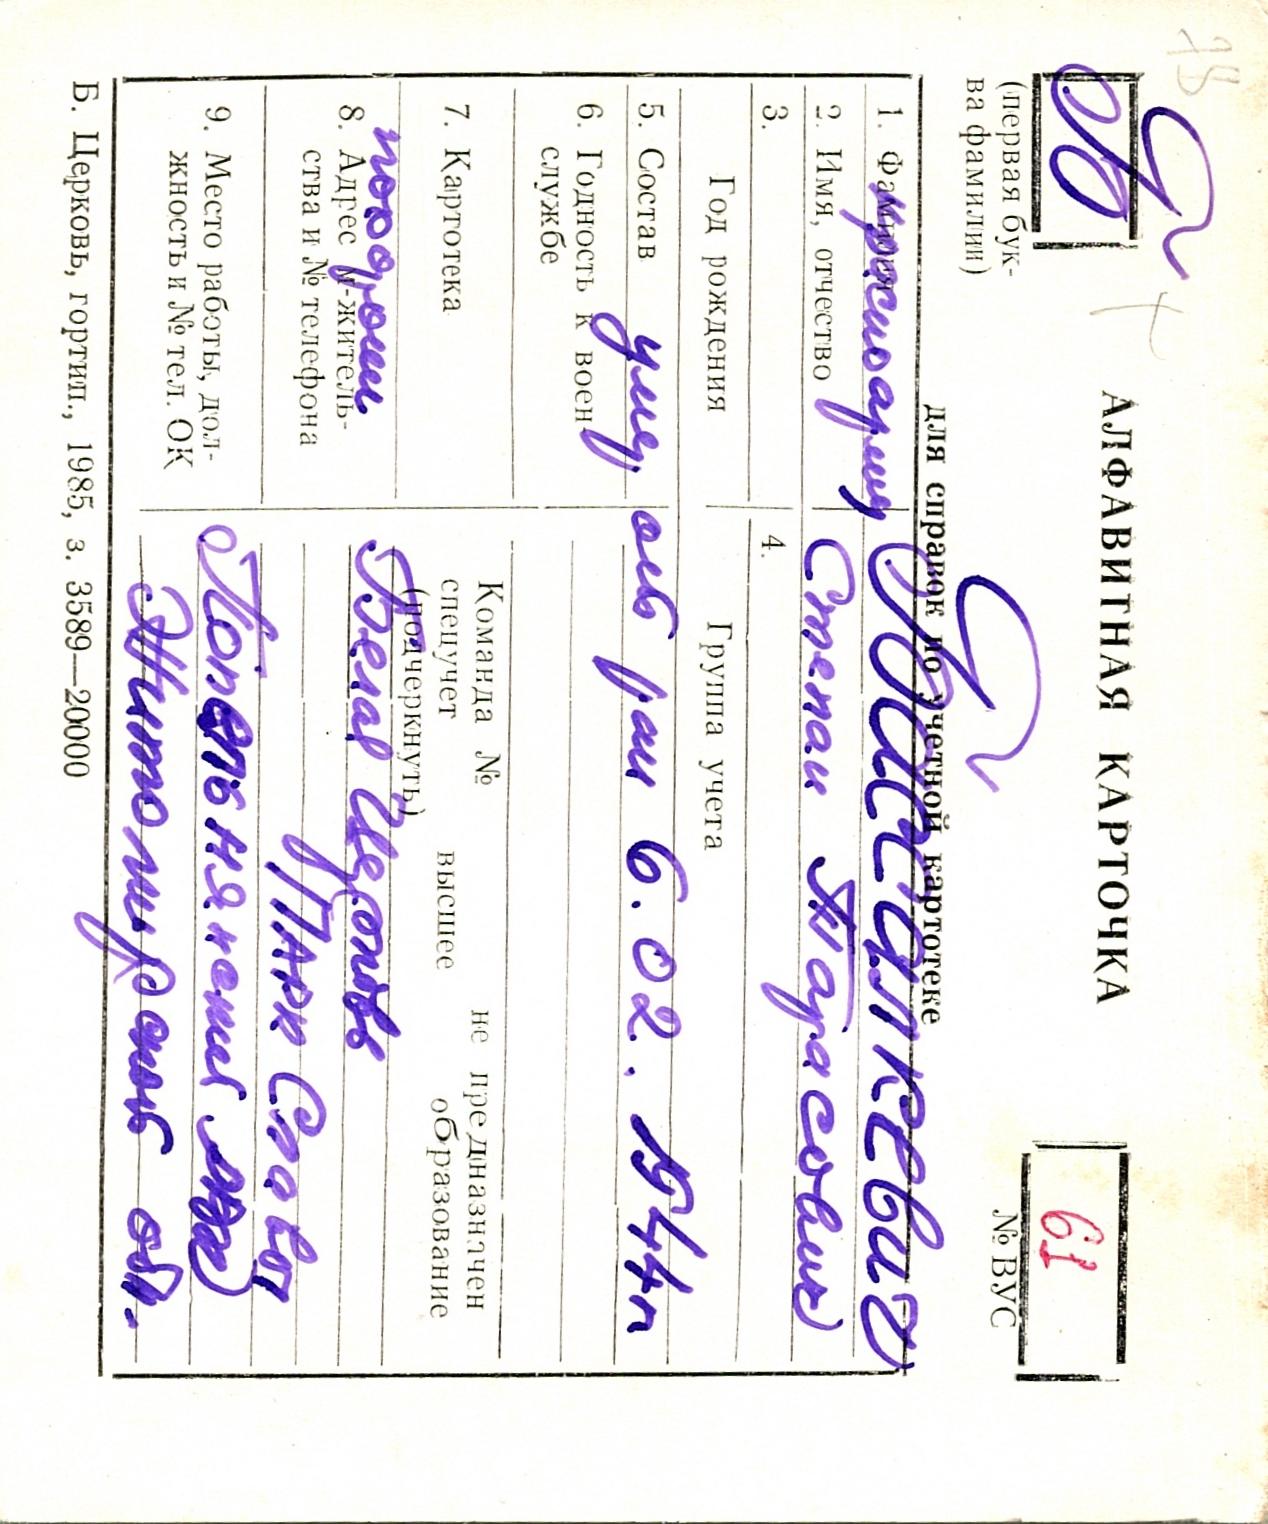 78
Ю
(первая бук-
ва фамилии)
АЛФАВИТНАЯ КАРТОЧКА
для справок по учетной картотеке
61
№ ВУС
1. Фамилия
красноармеец
2. Имя, отчество Степан Тарасович
3. Год рождения
4. Группа учета
5. Состав умер от ран 6.02.1944г
6. Годность к воен-
службе
7. Картотека
Команда №
спецучет
(подчеркнуть)
высшее
не предназначен
образование
похоронен
8. Адрес м-житель-
ства и № телефона
Белая Церковь
Парк Славы
9. Место работы, дол-
жность и № тел. ОК
Житомирской обл.
Б. Церковь, гортип., 1985, з. 3589—20000